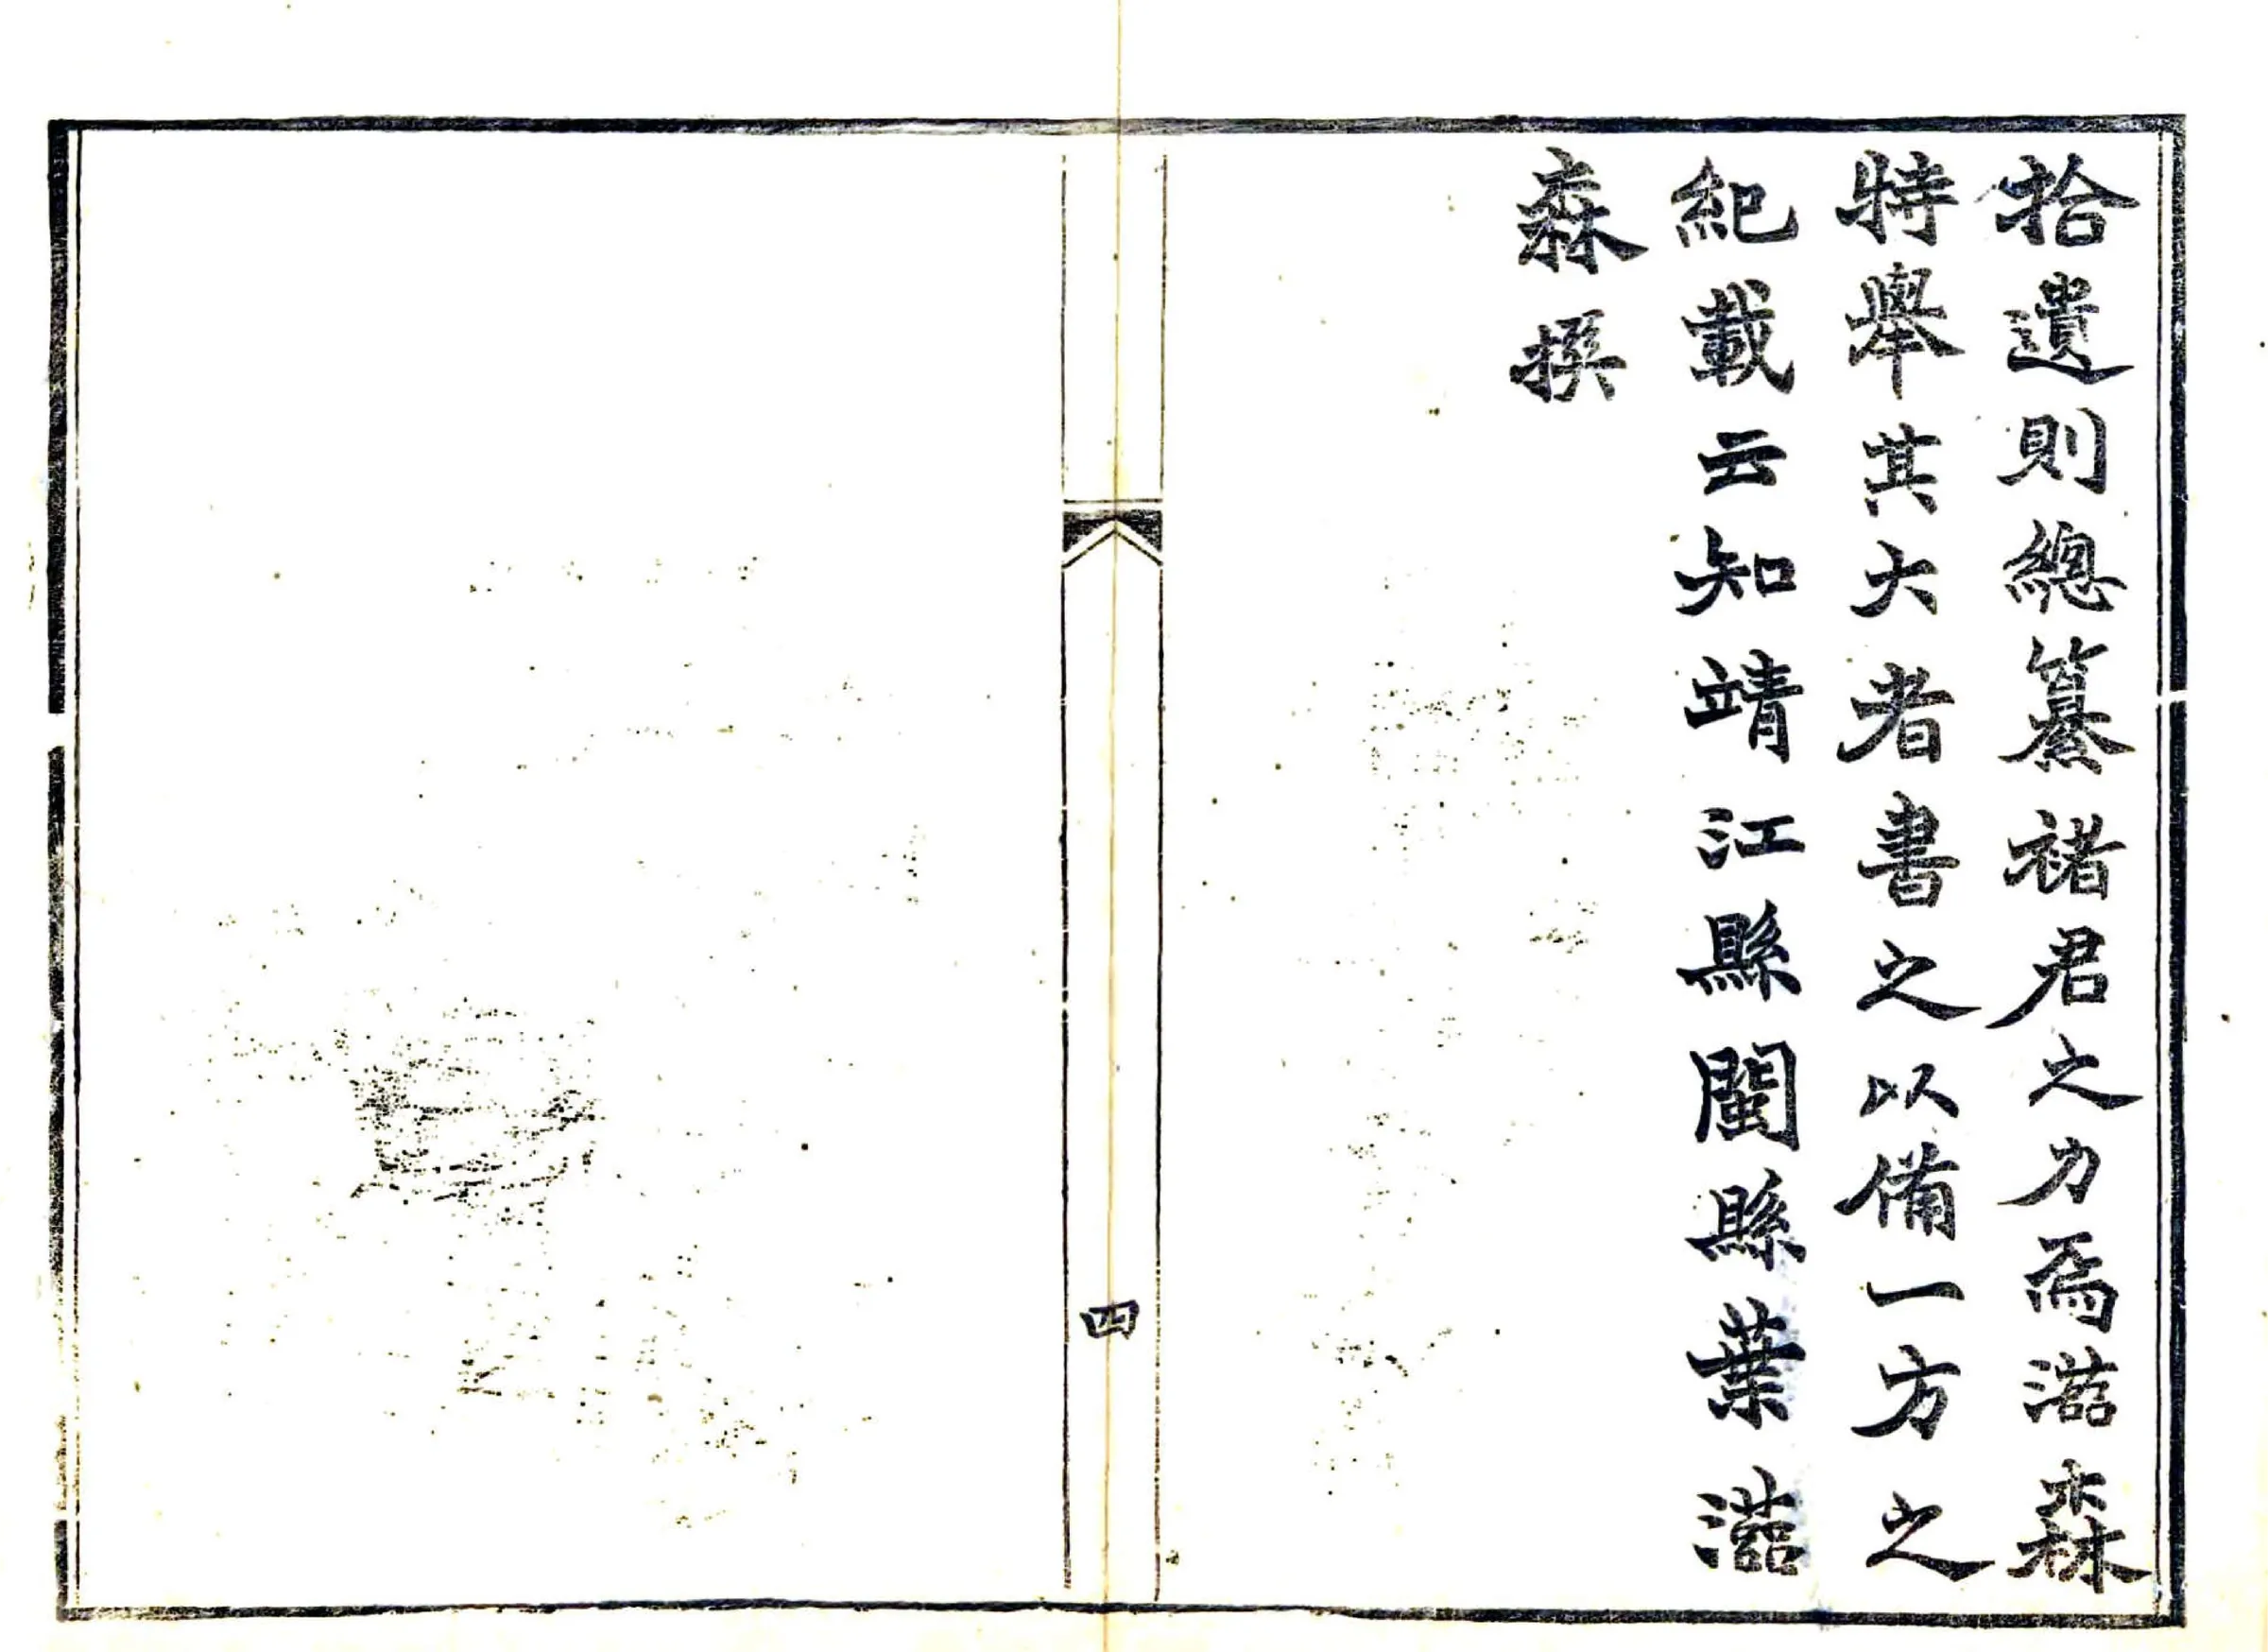 拾遺則總纂褚君之力焉滋森
特舉其大者書之以備一方之
紀載云知靖江縣閩縣葉滋
森撰
四